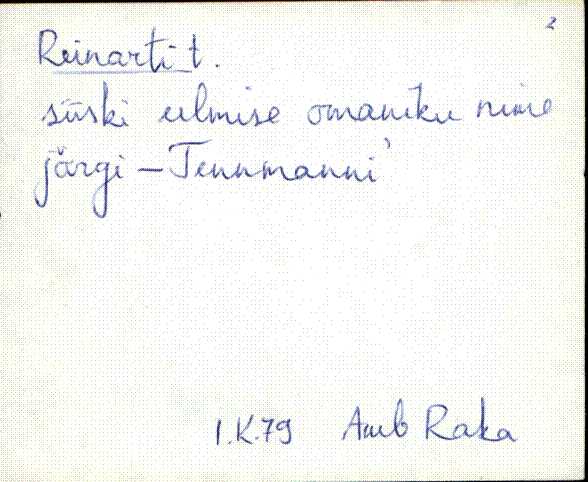 2
Reinarti t.
siiski eelmise omaniku nime
järgi – Tennmanni'
I.K.79 Amb Raka